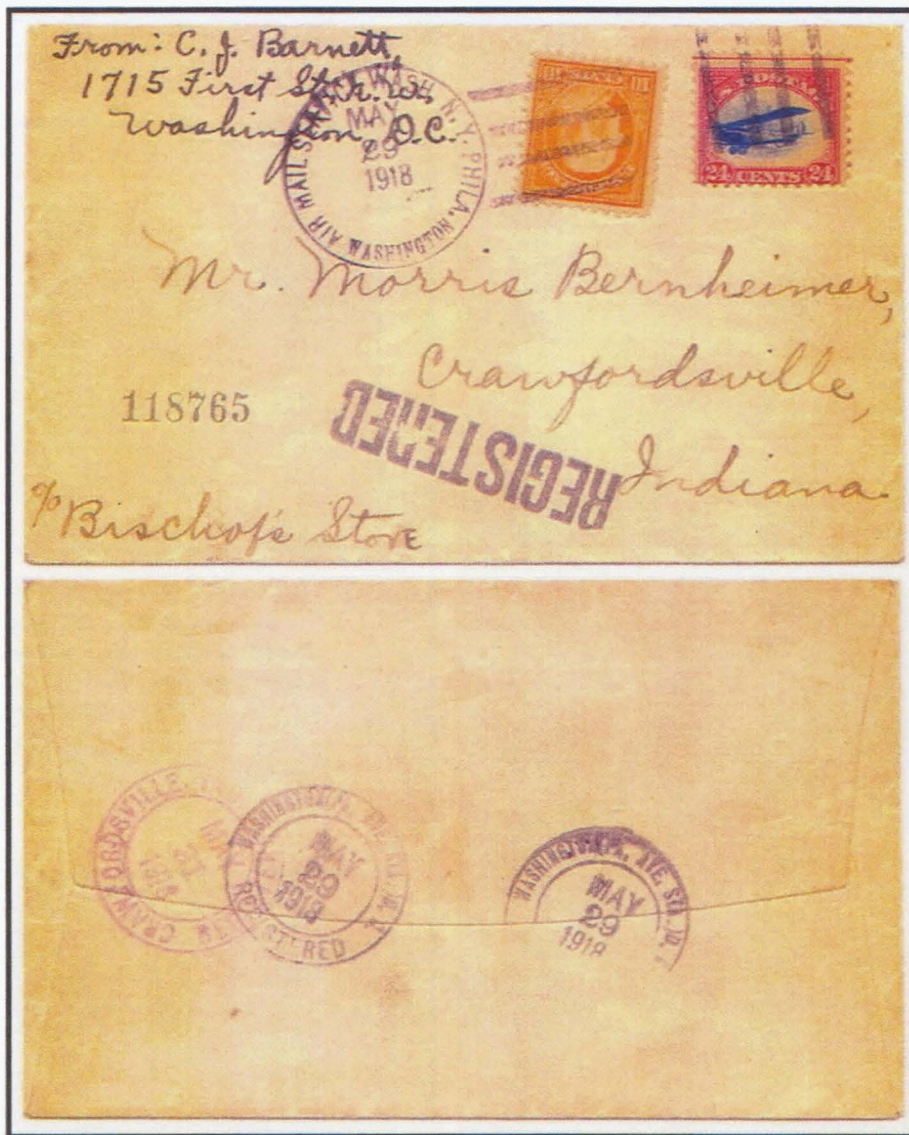 From: C. J. Barnett,
1715 First St. N.W.
Washington, D.C.
AIR MAIL SERVICE WASH. N.Y. PHILA.
MAY
29
1918
WASHINGTON
CENTS
U.S. POSTAGE
24 CENTS 24
Mr. Morris Bernheimer,
Crawfordsville,
Indiana.
118765
REGISTERED
c/o Bischof's Store
CRAWFORDSVILLE,
1918
WASHINGTON, PA. AVE. STA.
MAY
29
1918
REGISTERED
WASHINGTON, PA. AVE. STA., D.
MAY
29
1918